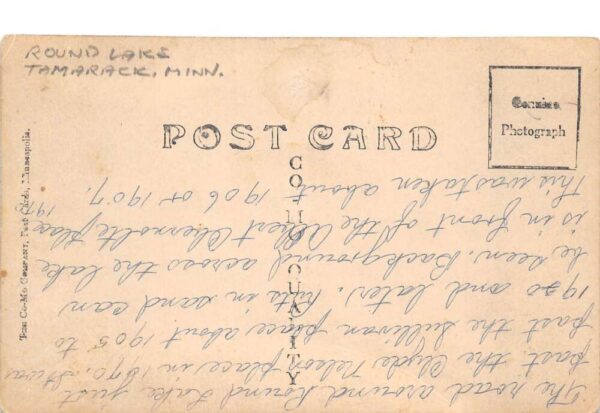 ROUND LAKE
TAMARACK, MINN.
POST CARD
CO-MO QUALITY
Genuine
Photograph
THE CO-MO COMPANY, Post Cards, Minneapolis.
The road around Round Lake just
past the Clyde place in 1890. It was
past the Sullivan place about 1905 to
1920 and later. Ruts in sand can
be seen. Background across the lake
is in front of the Albert place
This was taken about 1906 or 1907.